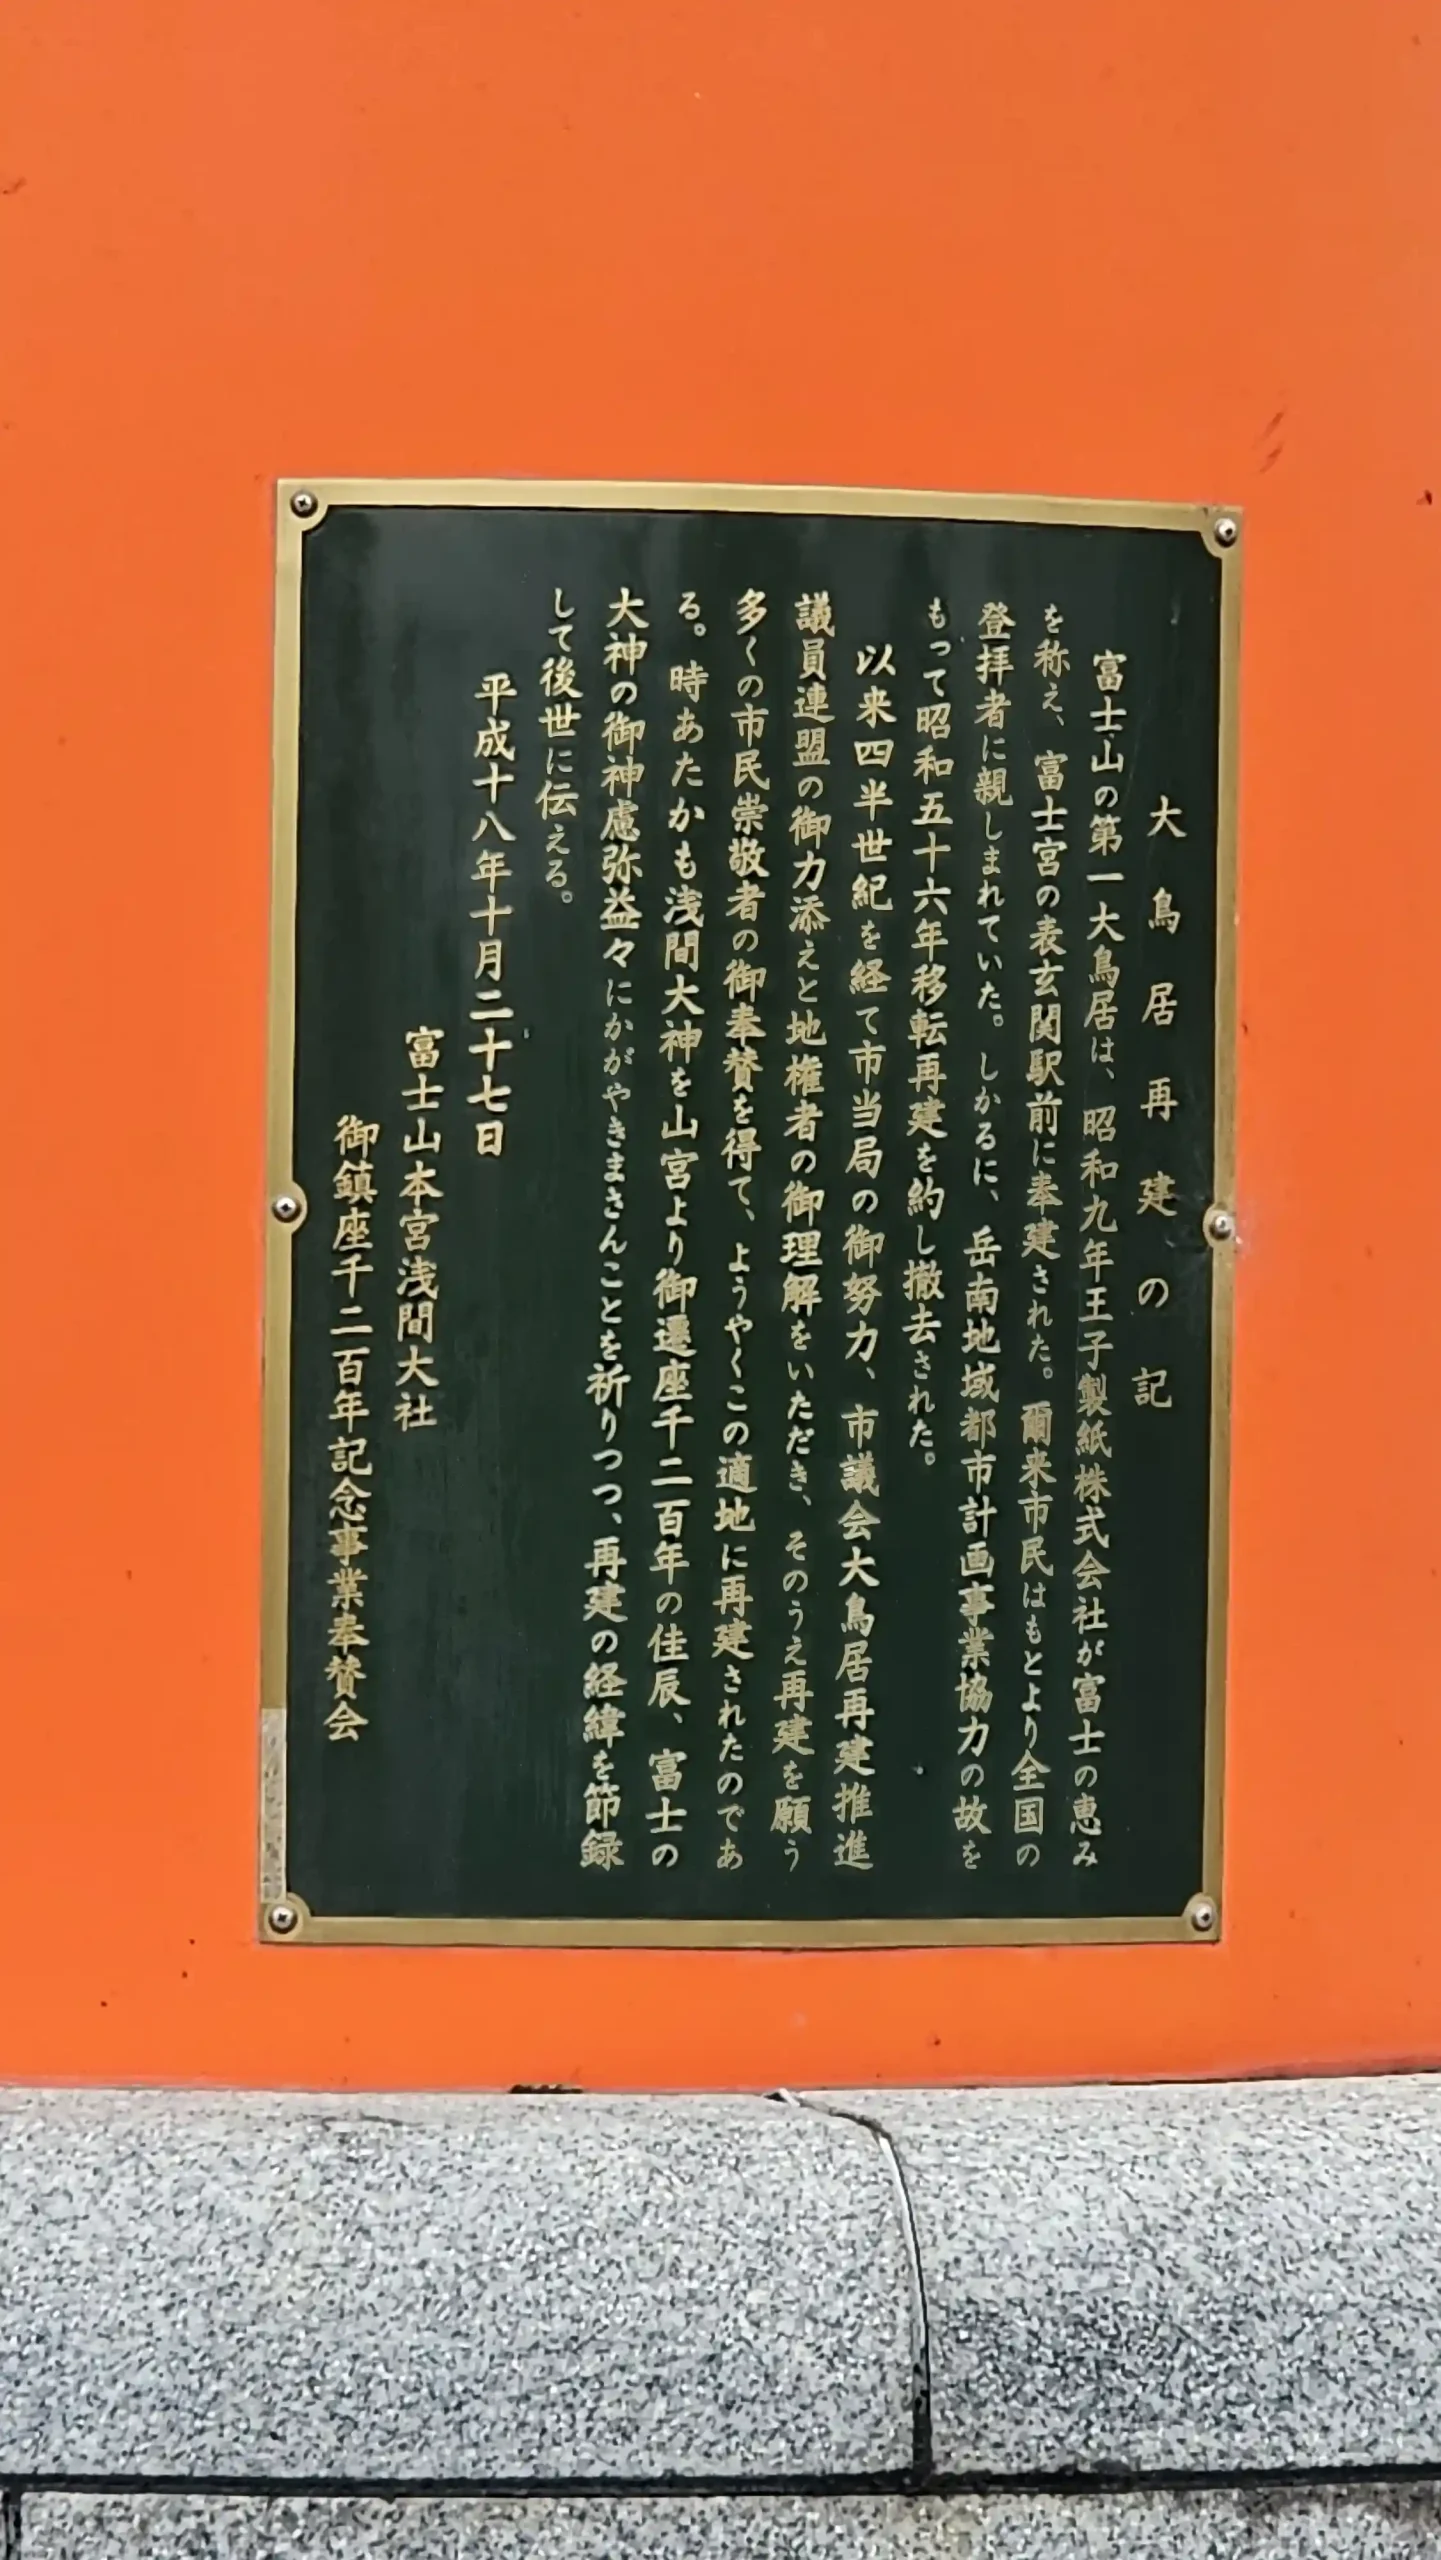 大鳥居再建の記
富士山の第一大鳥居は、昭和九年王子製紙株式会社が富士の恵み
を称え、富士宮の表玄関駅前に奉建された。爾来市民はもとより全国の
登拝者に親しまれていた。しかるに、岳南地域都市計画事業協力の故を
もって昭和五十六年移転再建を約し撤去された。
以来四半世紀を経て市当局の御努力、市議会大鳥居再建推進
議員連盟の御力添えと地権者の御理解をいただき、そのうえ再建を願う
多くの市民崇敬者の御奉賛を得て、ようやくこの適地に再建されたのであ
る。時あたかも浅間大神を山宮より御遷座千二百年の佳辰、富士の
大神の御神慮弥益々にかがやきまさんことを祈りつつ、再建の経緯を節録
して後世に伝える。
平成十八年十月二十七日
富士山本宮浅間大社
御鎮座千二百年記念事業奉賛会